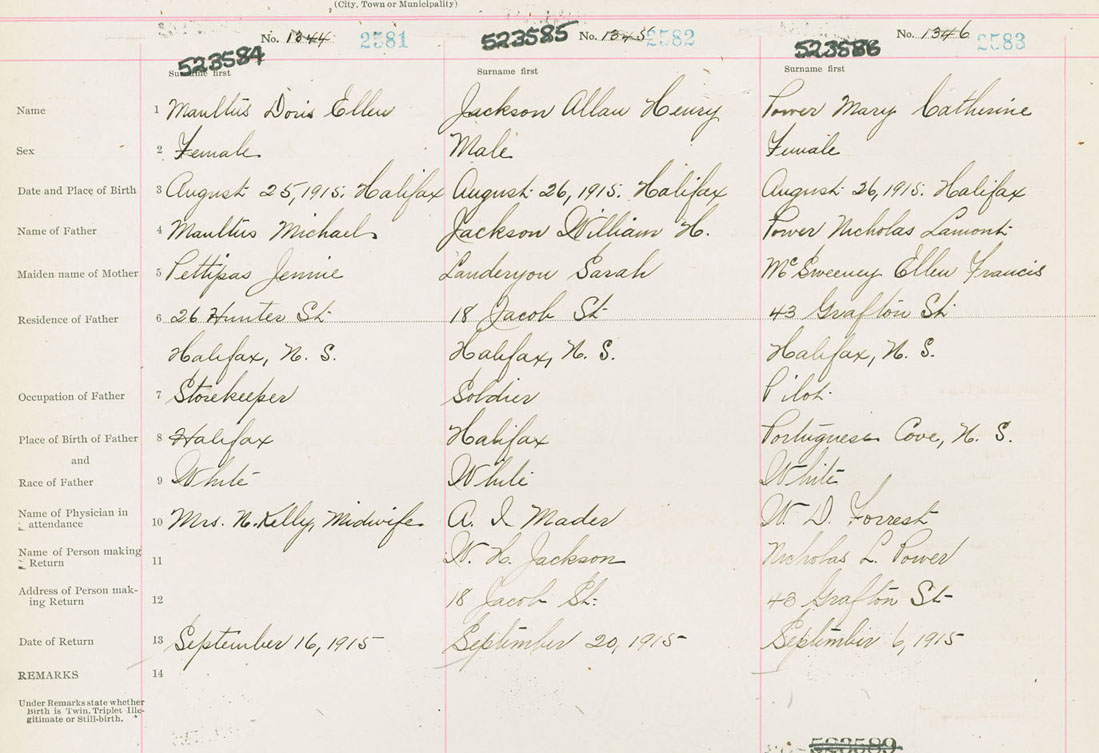 (City, Town or Municipality)
No. 1344 2581 No. 1345 2582 No. 1346 2583
523584 523585 523586
Surname first Surname first Surname first
Name 1 Maultus Doris Ellen Jackson Allan Henry Power Mary Catherine
Sex 2 Female Male Female
Date and Place of Birth 3 August 25, 1915. Halifax August 26, 1915. Halifax August 26, 1915. Halifax
Name of Father 4 Maultus Michael Jackson William H. Power Nicholas Lamont
Maiden name of Mother 5 Pettipas Jennie Landeryou Sarah McSweeney Ellen Francis
Residence of Father 6 26 Hunter St. 18 Jacob St. 43 Grafton St
Halifax, N. S. Halifax, N. S. Halifax, N. S.
Occupation of Father 7 Storekeeper Soldier Pilot
Place of Birth of Father 8 Halifax Halifax Portuguese Cove, N. S.
and
Race of Father 9 White White White
Name of Physician in attendance 10 Mrs. N. Kelly, Midwife A. I. Mader W. D. Forrest
Name of Person making Return 11 W. H. Jackson Nicholas L. Power
Address of Person making Return 12 18 Jacob St. 43 Grafton St
Date of Return 13 September 16, 1915 September 20, 1915 September 6, 1915
REMARKS 14
Under Remarks state whether
Birth is Twin, Triplet Ille-
gitimate or Still-birth.
523589